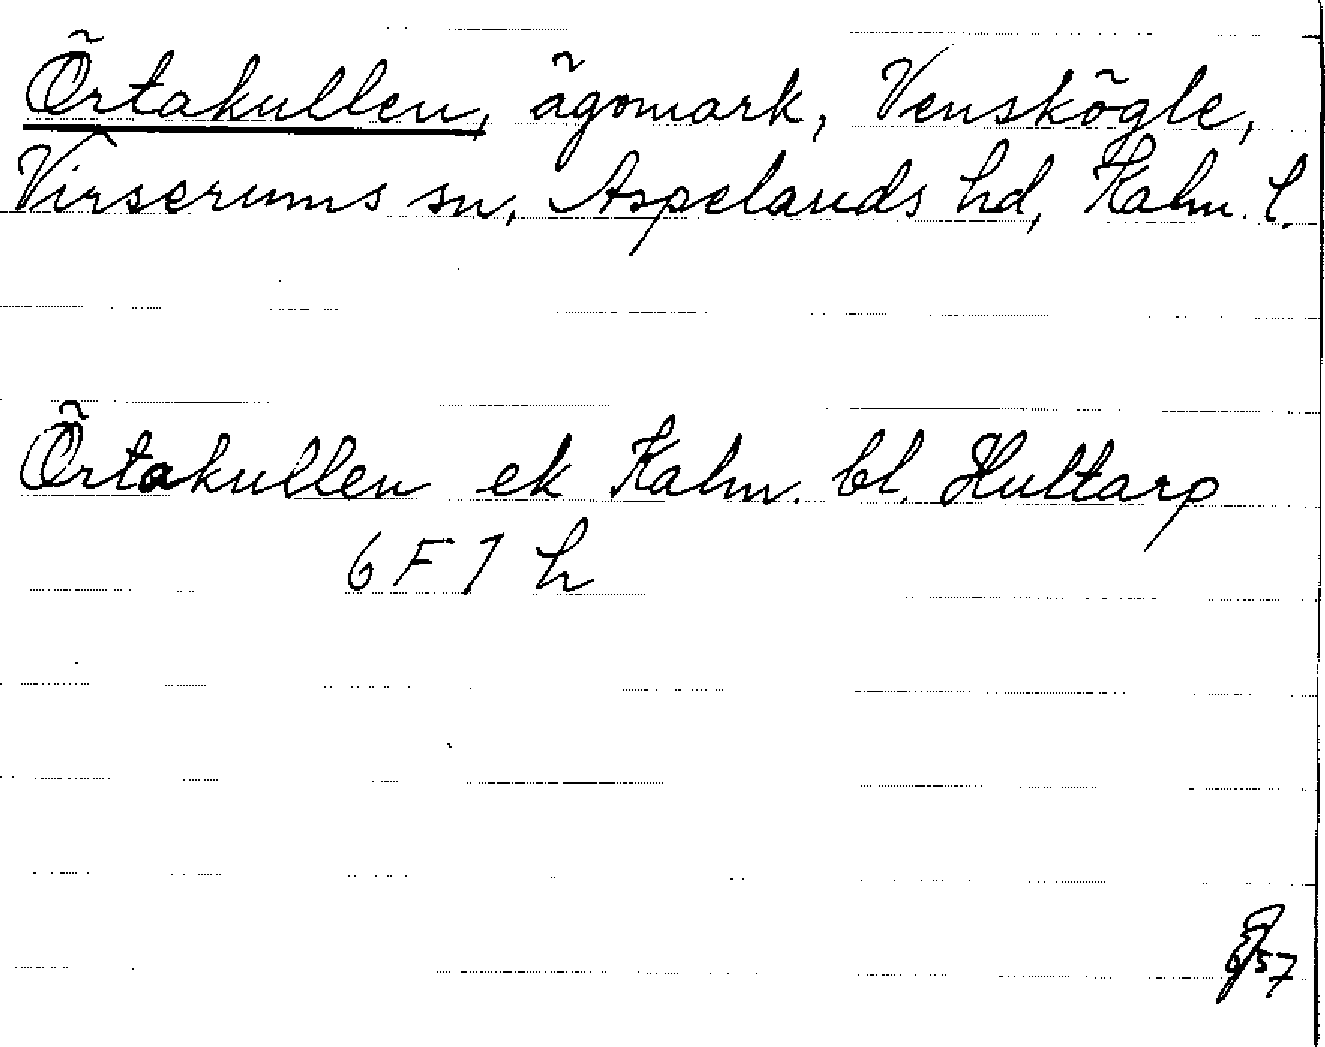 Örtakullen, ägomark, Venskögle,
Virserums sn, Aspelands hd, Kalm. l.
Örtakullen ek Kalm. bl. Hultarp
6 F 7 h
57